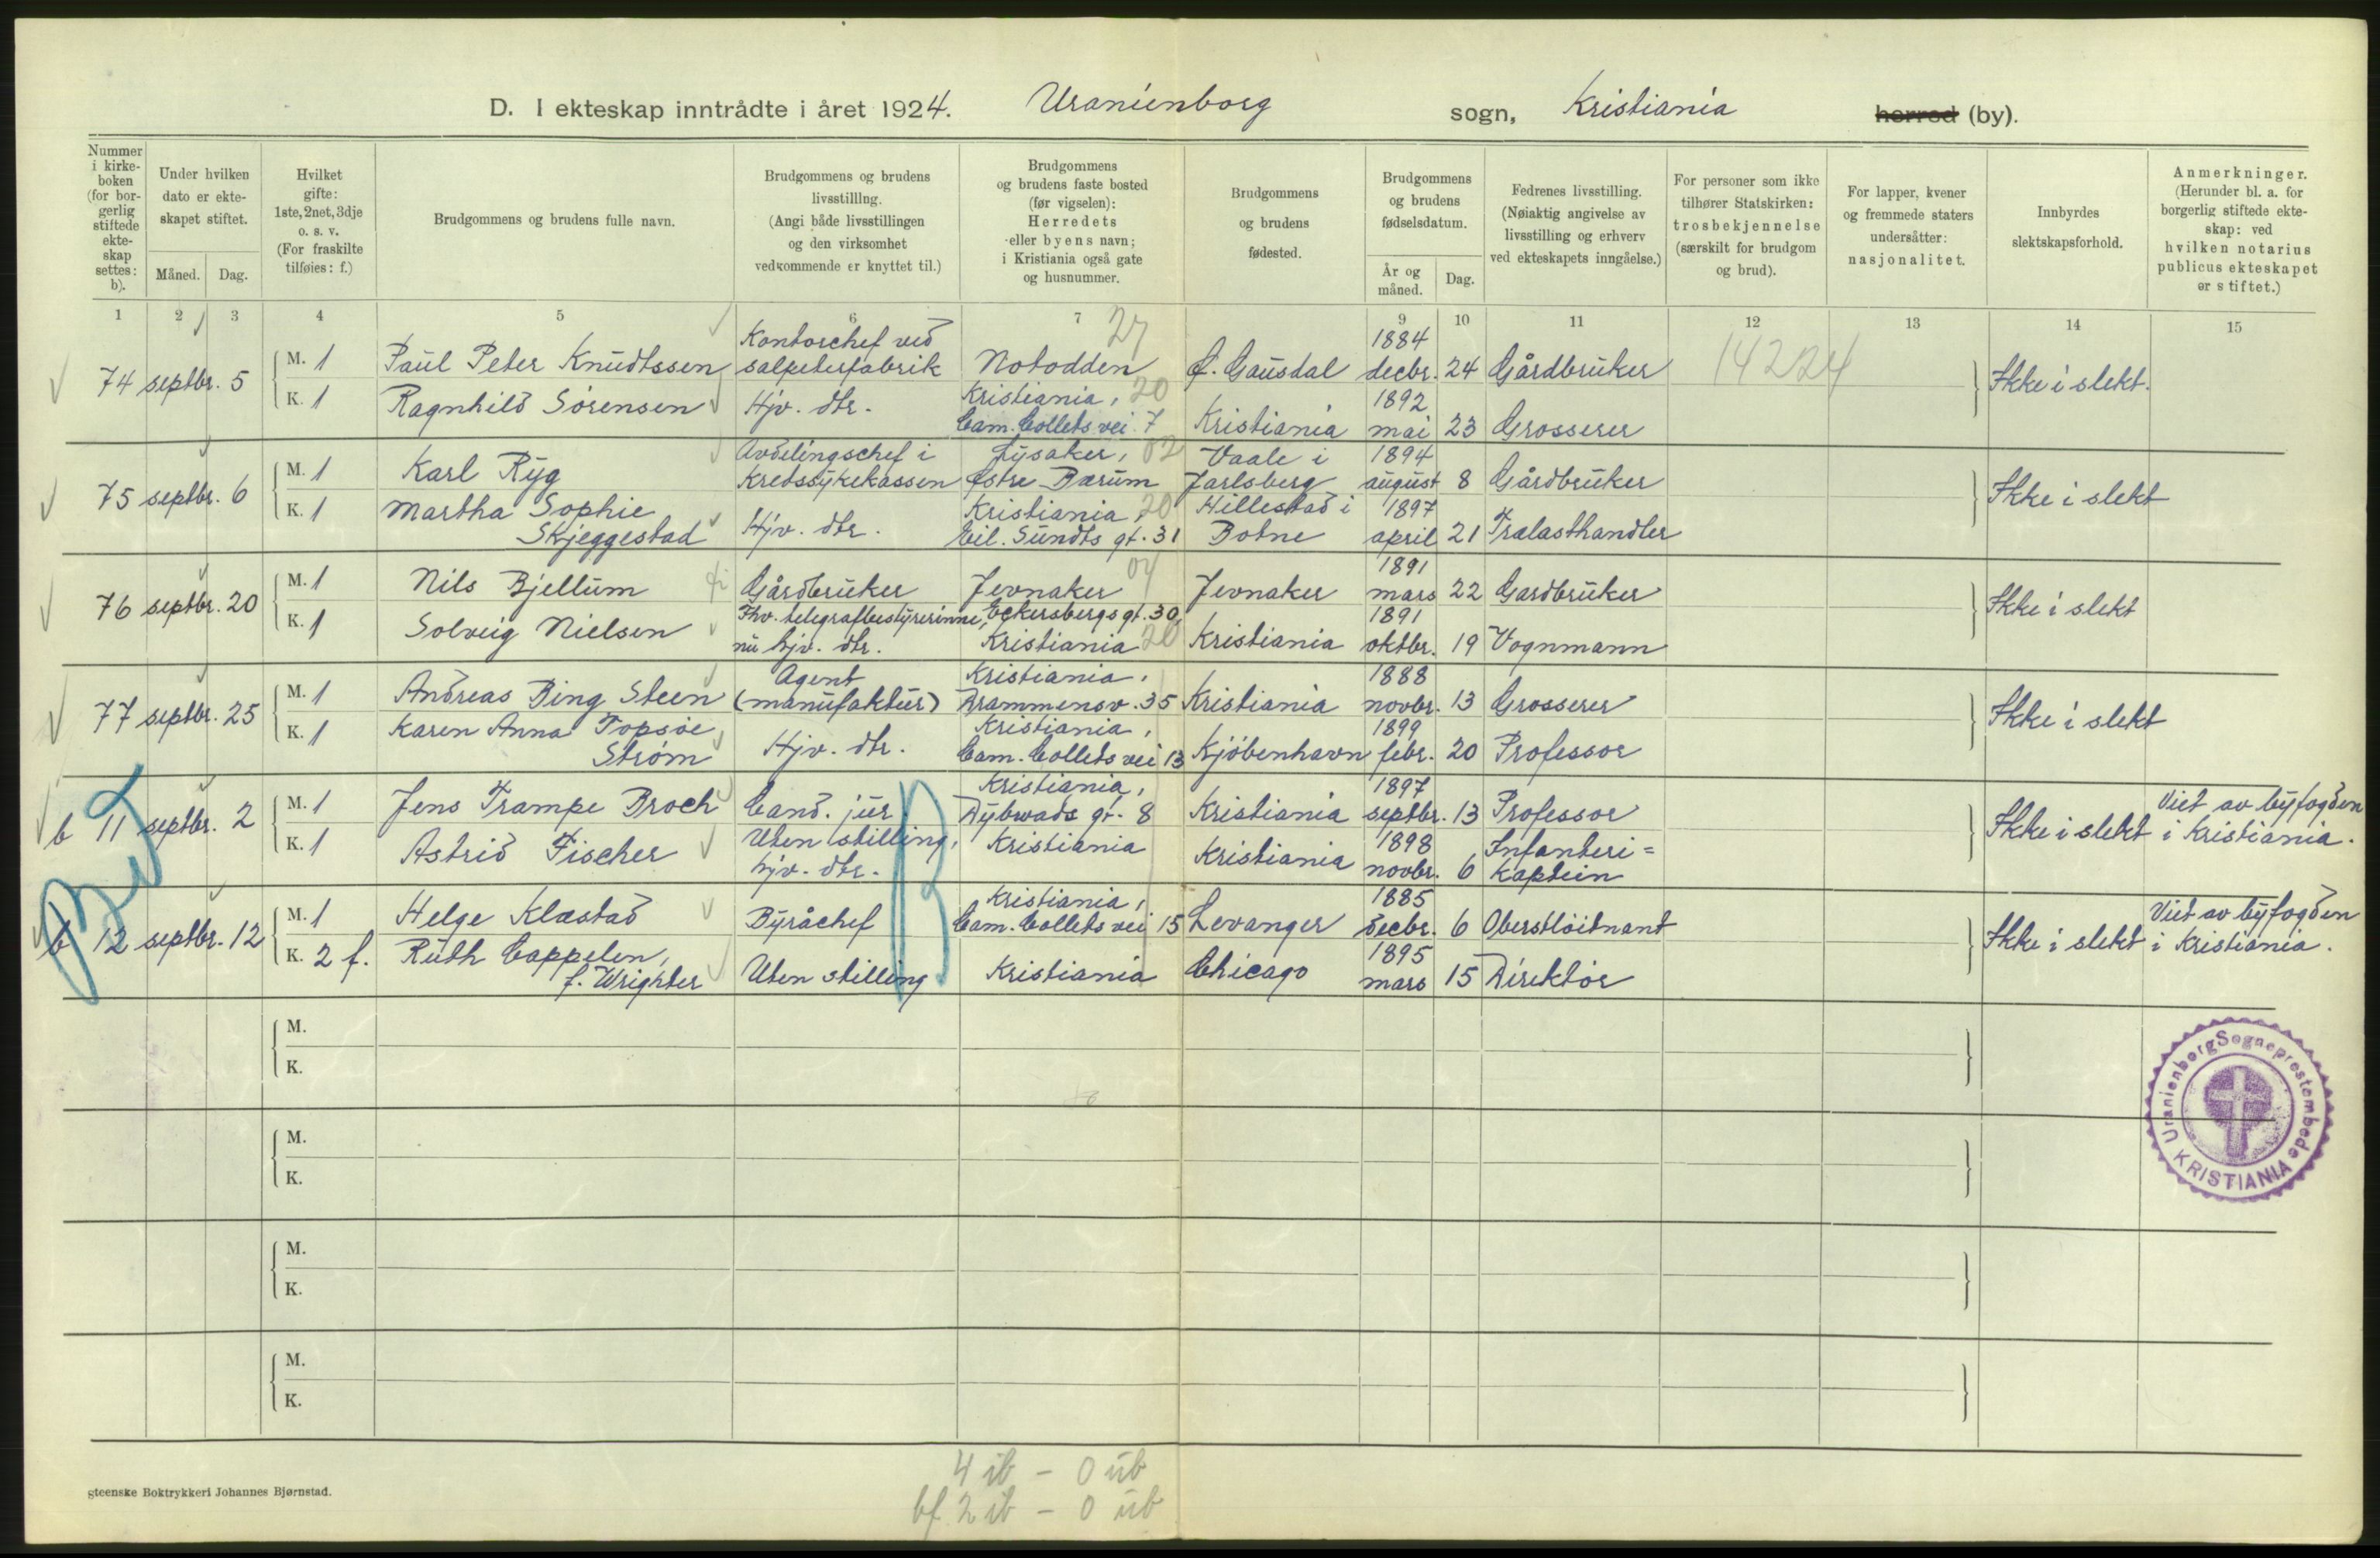 D. I ekteskap inntrådte i året 1924. Uranienborg sogn, Kristiania herred (by).
Nummer i kirkeboken (for borgerlig stiftede ekteskap settes: b).
Under hvilken dato er ekteskapet stiftet.
Måned. Dag.
Hvilket gifte: 1ste, 2net, 3dje o. s. v. (For fraskilte tilføies: f.)
Brudgommens og brudens fulle navn.
Brudgommens og brudens livsstilling. (Angi både livsstillingen og den virksomhet vedkommende er knyttet til.)
Brudgommens og brudens faste bosted (før vigselen): Herredets eller byens navn; i Kristiania også gate og husnummer.
Brudgommens og brudens fødested.
Brudgommens og brudens fødselsdatum.
År og måned. Dag.
Fedrenes livsstilling. (Nøiaktig angivelse av livsstilling og erhverv ved ekteskapets inngåelse.)
For personer som ikke tilhører Statskirken: trosbekjennelse (særskilt for brudgom og brud).
For lapper, kvener og fremmede staters undersåtter: nasjonalitet.
Innbyrdes slektskapsforhold.
Anmerkninger. (Herunder bl. a. for borgerlig stiftede ekteskap: ved hvilken notarius publicus ekteskapet er stiftet.)
1 2 3 4 5 6 7 9 10 11 12 13 14 15
74 septbr. 5
M. 1 Paul Peter Knudtssen Kontorchef ved salpeterfabrik Notodden 27 Ø. Gausdal 1884 decbr. 24 Gårdbruker 14224
K. 1 Ragnhild Sörensen Hjv. dtr. Kristiania, 20 Cam. Colletts vei 7 Kristiania 1892 mai 23 Grosserer
Ikke i slekt.
75 septbr. 6
M. 1 Karl Ryg Avdelingschef i Kredssykekassen Lysaker, 02 Østre Bærum Vaale i Jarlsberg 1894 august 8 Gårdbruker
K. 1 Martha Sophie Skjeggestad Hjv. dtr. Kristiania, 20 Eil. Sundts gt. 31 Hillestad i Botne 1897 april 21 Trælasthandler
Ikke i slekt
76 septbr. 20
M. 1 Nils Bjellum Gårdbruker Jevnaker 04 Jevnaker 1891 mars 22 Gardbruker
K. 1 Solveig Nielsen Fhv. telegrafbestyrerinne, nu hjv. dtr. Eckersbergs gt. 30, Kristiania 20 Kristiania 1891 oktbr. 19 Vognmann
Ikke i slekt
77 septbr. 25
M. 1 Andreas Bing Steen Agent (manufaktur) Kristiania, Drammensv. 35 Kristiania 1888 novbr. 13 Grosserer
K. 1 Karen Anna Topsöe Ström Hjv. dtr. Kristiania, Cam. Colletts vei 13 Kjöbenhavn 1899 febr. 20 Professor
Ikke i slekt
b 11 septbr. 2
M. 1 Jens Trampe Broch Cand. jur Kristiania, Dybwads gt. 8 Kristiania 1897 septbr. 13 Professor
K. 1 Astrid Fischer Uten stilling, hjv. dtr. Kristiania Kristiania 1898 novbr. 6 Infanteri=kaptein
Ikke i slekt Viet av byfogden i Kristiania.
b 12 septbr. 12
M. 1 Helge Klæstad Byråchef Kristiania, Cam. Colletts vei 15 Levanger 1885 decbr. 6 Oberstlöitnant
K. 2 f. Ruth Cappelen, f. Wrighter Uten stilling Kristiania Chicago 1895 mars 15 Direktör
Ikke i slekt Viet av byfogden i Kristiania.
M.
K.
M.
K.
M.
K.
M.
K.
Uranienborg Sogneprestembede KRISTIANIA
4 ib - 0 ub
bf. 2 ib - 0 ub
steenske Boktrykkeri Johannes Bjørnstad.